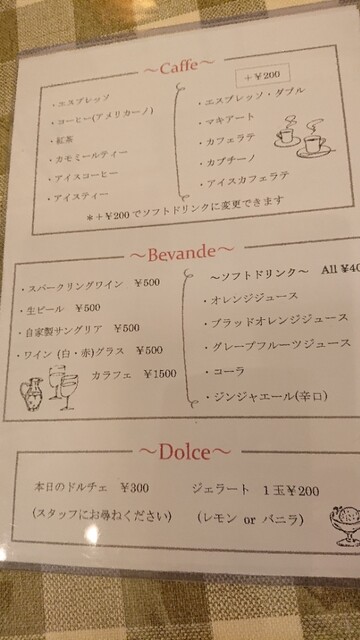 ～Caffe～
・エスプレッソ
・コーヒー(アメリカーノ)
・紅茶
・カモミールティー
・アイスコーヒー
・アイスティー
＋￥200
・エスプレッソ・ダブル
・マキアート
・カフェラテ
・カプチーノ
・アイスカフェラテ
＊＋￥200でソフトドリンクに変更できます
～Bevande～
・スパークリングワイン ￥500
・生ビール ￥500
・自家製サングリア ￥500
・ワイン (白・赤)グラス ￥500
カラフェ ￥1500
～ソフトドリンク～ All ￥40
・オレンジジュース
・ブラッドオレンジジュース
・グレープフルーツジュース
・コーラ
・ジンジャエール(辛口)
～Dolce～
本日のドルチェ ￥300
(スタッフにお尋ねください)
ジェラート １玉￥200
(レモン or バニラ)